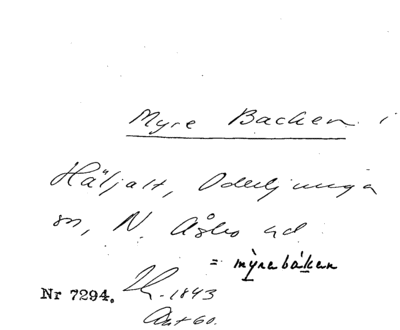 Myre Backen i
Häljalt, Oderljunga
sn, N. Åsbo hd
= myrabáken
Nr 7294.
1843
Akt 60.